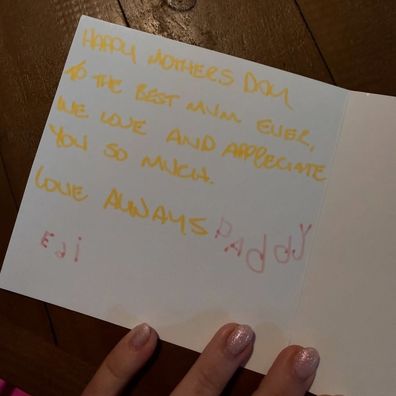 HAPPY MOTHERS DAY
TO THE BEST MUM EVER,
WE LOVE AND APPRECIATE
YOU SO MUCH.
LOVE ALWAYS PAddY